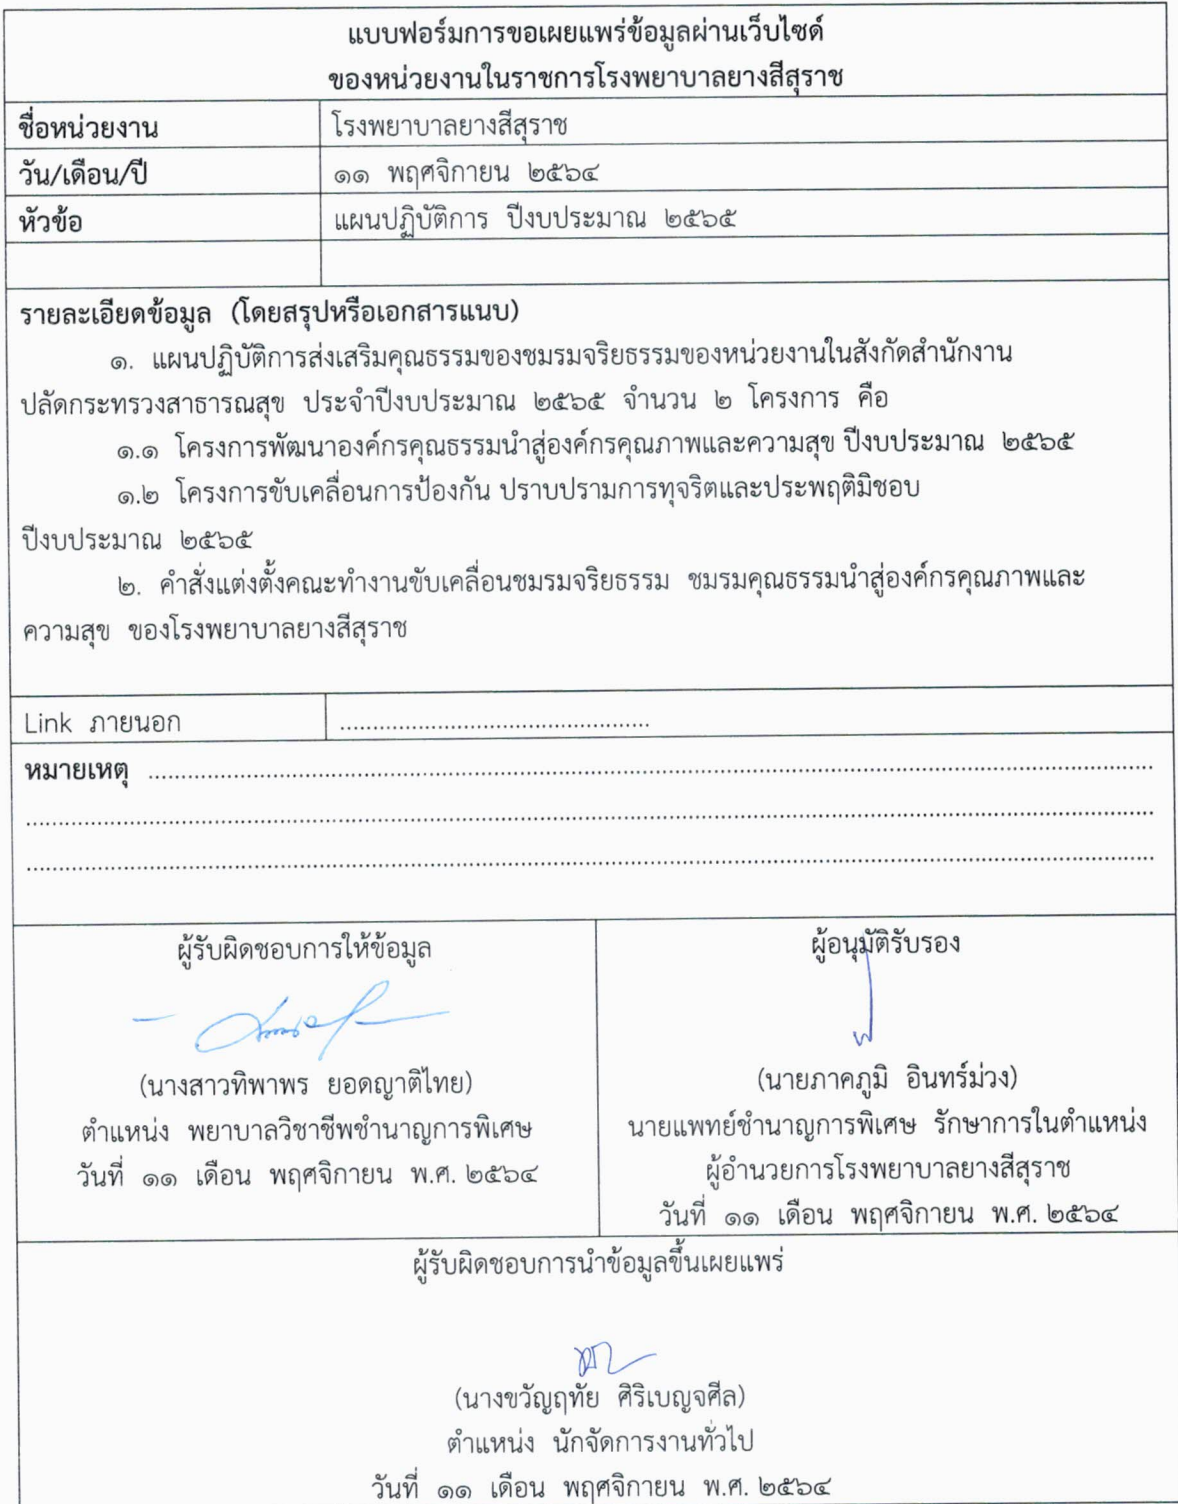 แบบฟอร์มการขอเผยแพร่ข้อมูลผ่านเว็บไซด์
ของหน่วยงานในราชการโรงพยาบาลยางสีสุราช
ชื่อหน่วยงาน โรงพยาบาลยางสีสุราช
วัน/เดือน/ปี ๑๑ พฤศจิกายน ๒๕๖๔
หัวข้อ แผนปฏิบัติการ ปีงบประมาณ ๒๕๖๕
รายละเอียดข้อมูล (โดยสรุปหรือเอกสารแนบ)
๑. แผนปฏิบัติการส่งเสริมคุณธรรมของชมรมจริยธรรมของหน่วยงานในสังกัดสำนักงาน
ปลัดกระทรวงสาธารณสุข ประจำปีงบประมาณ ๒๕๖๕ จำนวน ๒ โครงการ คือ
๑.๑ โครงการพัฒนาองค์กรคุณธรรมนำสู่องค์กรคุณภาพและความสุข ปีงบประมาณ ๒๕๖๕
๑.๒ โครงการขับเคลื่อนการป้องกัน ปราบปรามการทุจริตและประพฤติมิชอบ
ปีงบประมาณ ๒๕๖๕
๒. คำสั่งแต่งตั้งคณะทำงานขับเคลื่อนชมรมจริยธรรม ชมรมคุณธรรมนำสู่องค์กรคุณภาพและ
ความสุข ของโรงพยาบาลยางสีสุราช
Link ภายนอก ................................................
หมายเหตุ ................................................
................................................
................................................
ผู้รับผิดชอบการให้ข้อมูล
(นางสาวทิพาพร ยอดญาติไทย)
ตำแหน่ง พยาบาลวิชาชีพชำนาญการพิเศษ
วันที่ ๑๑ เดือน พฤศจิกายน พ.ศ. ๒๕๖๔
ผู้อนุมัติรับรอง
(นายภาคภูมิ อินทร์ม่วง)
นายแพทย์ชำนาญการพิเศษ รักษาการในตำแหน่ง
ผู้อำนวยการโรงพยาบาลยางสีสุราช
วันที่ ๑๑ เดือน พฤศจิกายน พ.ศ. ๒๕๖๔
ผู้รับผิดชอบการนำข้อมูลขึ้นเผยแพร่
(นางขวัญฤทัย ศิริเบญจศีล)
ตำแหน่ง นักจัดการงานทั่วไป
วันที่ ๑๑ เดือน พฤศจิกายน พ.ศ. ๒๕๖๔